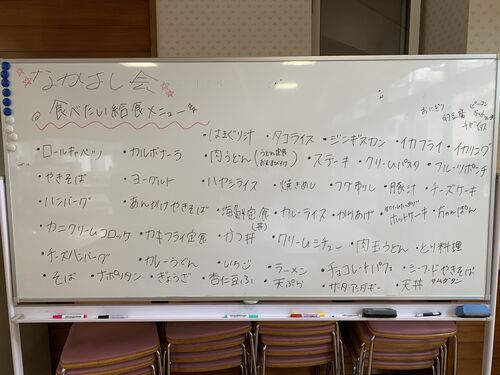 なかよし会
食べたい給食メニュー
おにぎり
・はまぐり汁 ・タコライス ・ジンギスカン ・イカフライ ・イカリング
・ロールキャベツ ・カルボナーラ ・肉うどん(うどん定食 ・ステーキ ・クリームパスタ ・フルーツポンチ
・やきそば ・ヨーグルト ・ハヤシライス ・焼きめし ・フグ刺し ・豚汁 ・チーズケーキ
・ハンバーグ ・あんかけやきそば ・海鮮定食(丼) ・カレーライス ・からあげ ・ホットケーキ ・ちゃんぽん
・カニクリームコロッケ ・カキフライ定食 ・かつ丼 ・クリームシチュー ・肉玉うどん ・とり料理
・チーズハンバーグ ・カレーうどん ・いちご ・ラーメン ・チョコレートパフェ ・シーフードやきそば
・そば ・ナポリタン ・ぎょうざ ・杏仁豆ふ ・天ぷら ・サーターアンダギー ・天丼 ・サムゲタン